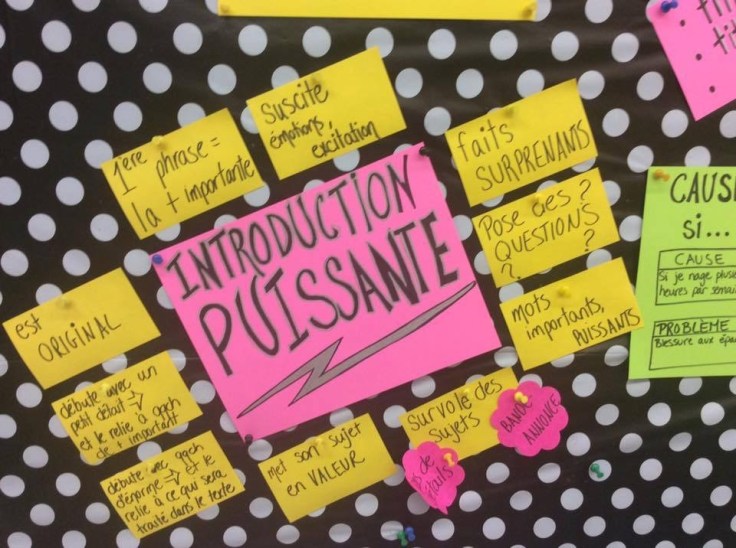 INTRODUCTION
PUISSANTE
1ère phrase =
la + importante
suscite
émotions,
excitation
faits
SURPRENANTS
Pose des ?
QUESTIONS
? ?
mots
importants,
PUISSANTS
survole des
sujets
BANDE
ANNONCE
de
faits
met son sujet
en VALEUR
débute avec qqch
d'énorme → et le
relie à ce qui sera
traité dans le texte
débute avec un
petit détail →
et le relie à qqch
de + important
est
ORIGINAL
CAUSE
si...
CAUSE
Si je nage
heures par
PROBLÈME
Blessure aux